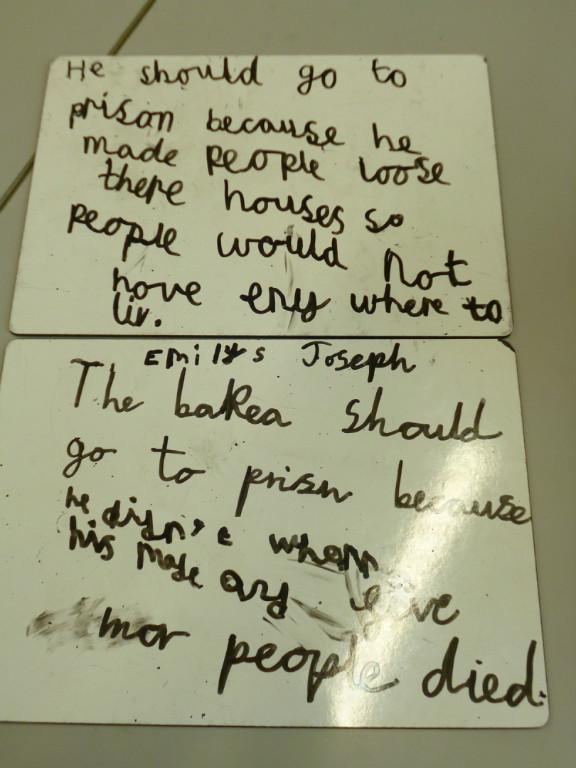 He should go to
prison because he
made people loose
there houses so
people would not
have eny where to
liv.
Emily's Joseph
The bakea should
go to prisn because
he didn't
his made and give
mor people died.